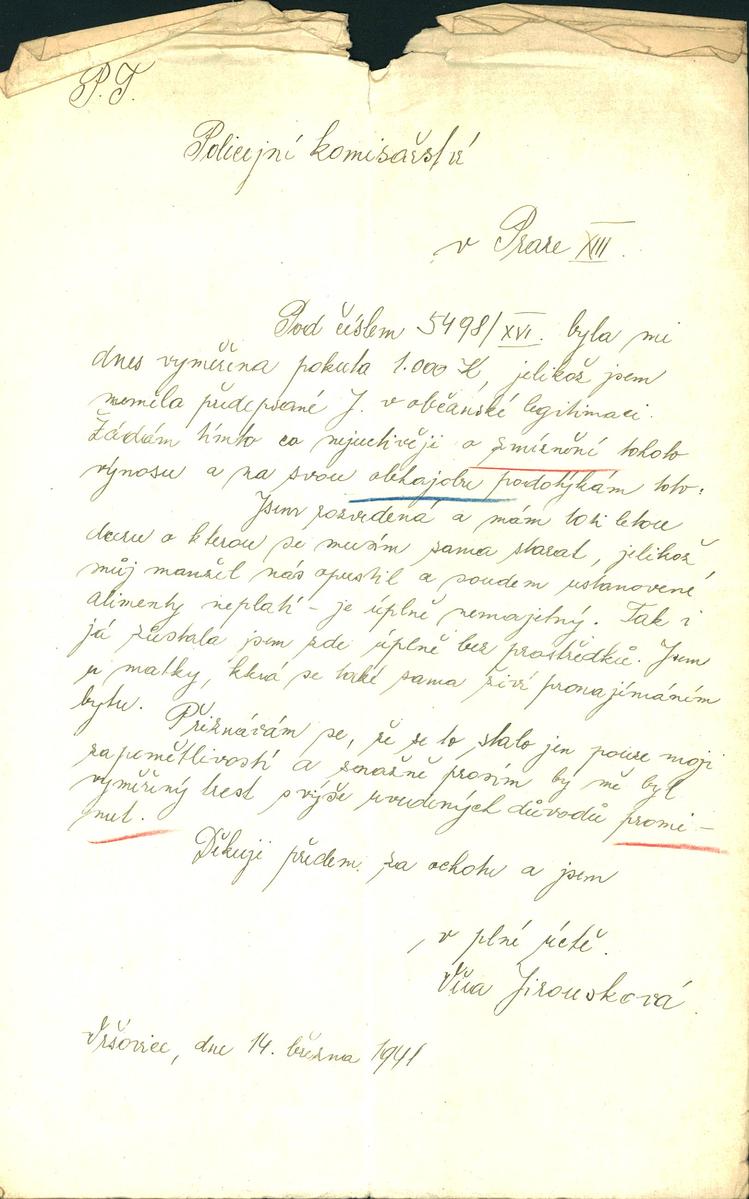 P.T.
Policejní komisařství
v Praze XIII.
Pod číslem 5498/XVI. byla mi
dnes vyměřena pokuta 1.000 K, jelikož jsem
neměla předepsané J. v občanské legitimaci.
Žádám tímto co nejuctivěji o zmírnění tohoto
výnosu a na svou obhajobu podotýkám toto:
Jsem rozvedená a mám tři letou
dceru o kterou se musím sama starat, jelikož
můj manžel nás opustil a soudem ustanovené
alimenty neplatí - je úplně nemajetný. Tak i
já zůstala jsem zde úplně bez prostředků. Jsem
u matky, která se také sama živí pronajímáním
bytu. Přiznávám se, že se to stalo jen pouze mojí
zapomětlivostí a snažně prosím by mě byl
vyměřený trest svýše uvedených důvodů promi-
nut.
Děkuji předem za ochotu a jsem
v plné úctě.
Jiroušková
Vršovice, dne 14. března 1941